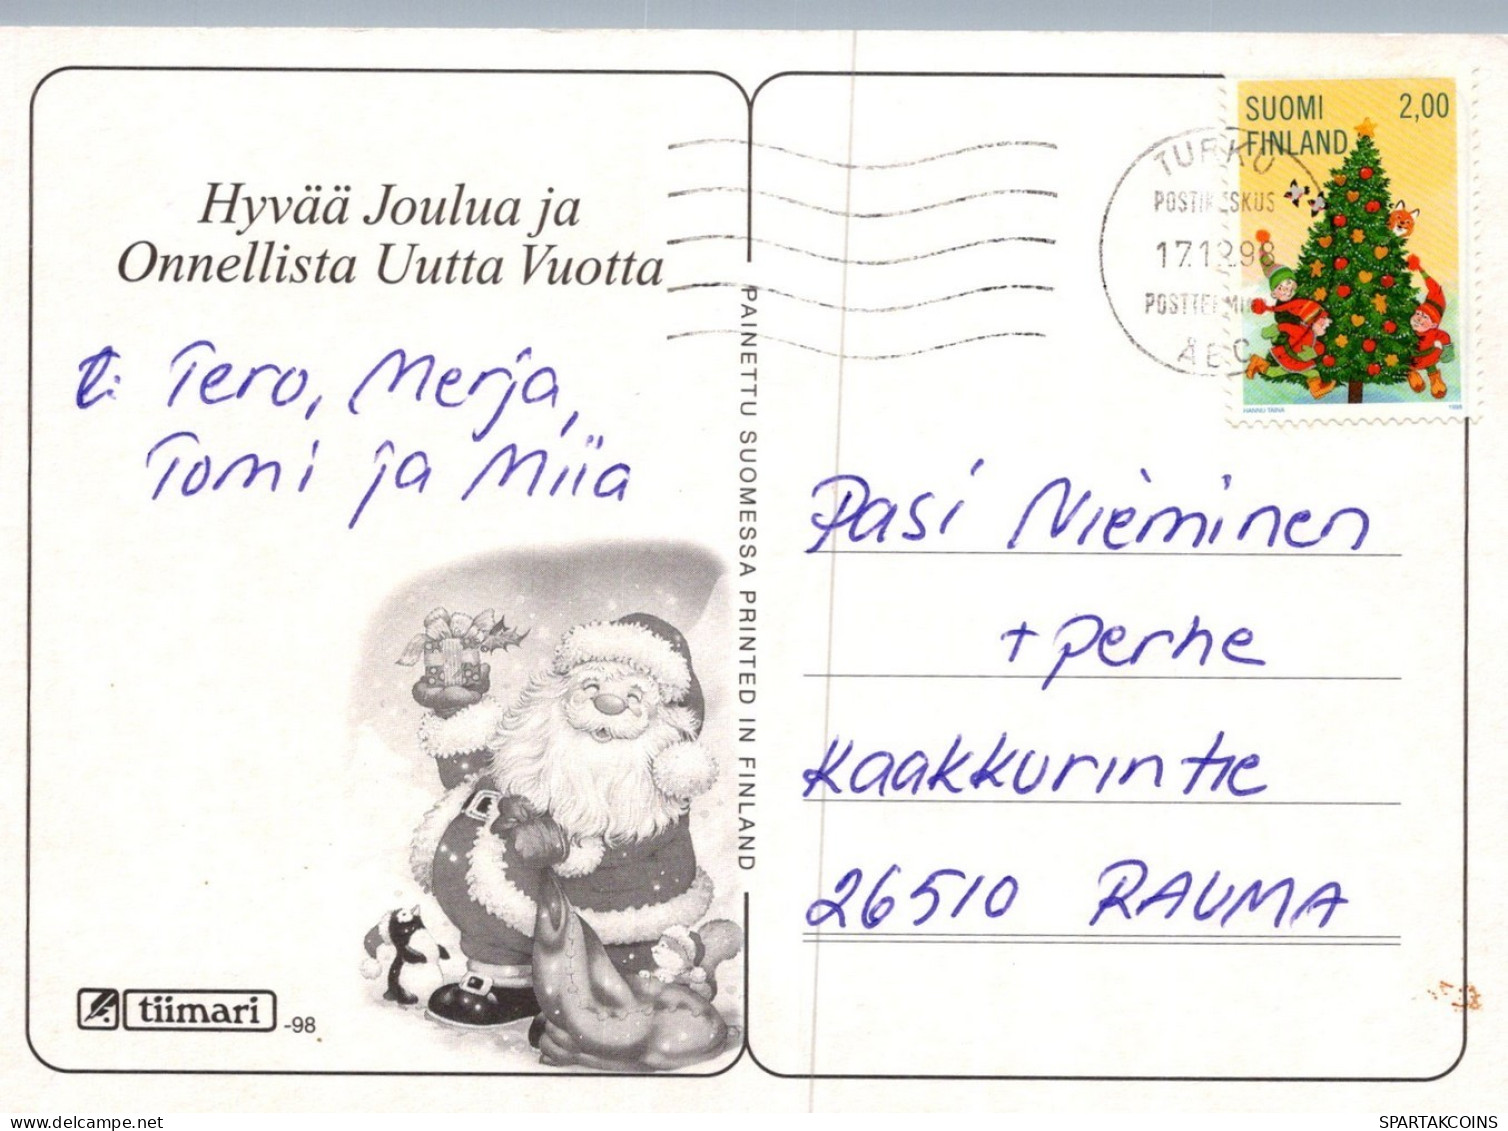 Hyvää Joulua ja
Onnellista Uutta Vuotta
t: Tero, Merja,
Tomi ja Miia
tiimari -98
PAINETTU SUOMESSA PRINTED IN FINLAND
SUOMI 2,00
FINLAND
HANNU TAINA 1998
TURKU
POSTIKESKUS
17.12.98
ÅBO
Pasi Nieminen
+ perhe
Kaakkurintie
26510 RAUMA
SPARTAKCOINS